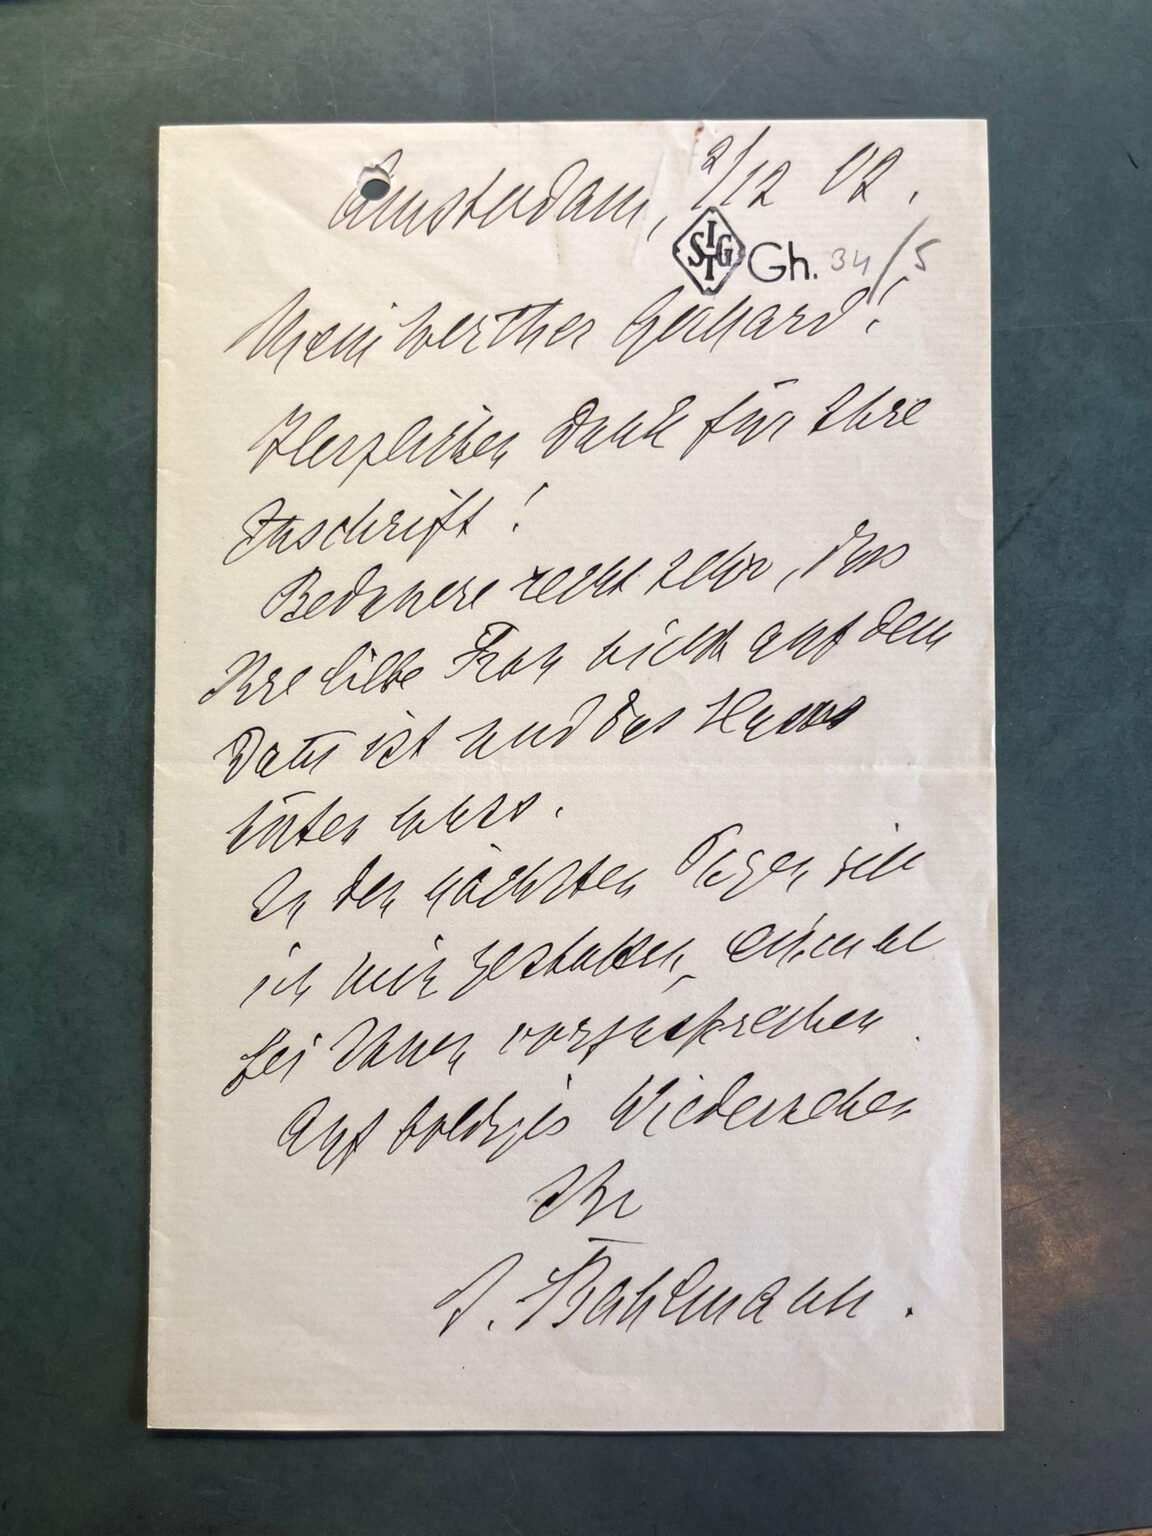 Amsterdam, 2/12 02.
ISGT Gh. 34/5
Mein werther Gerhard!
Herzlichen Dank für Ihre
Zuschrift!
Bedauere recht sehr, dass
Ihre liebe Frau nicht auf dem
Damm ist und das Haus
hüten muss.
In den nächsten Tagen will
ich mir gestatten, einmal
bei Ihnen vorzusprechen.
Auf baldiges Wiedersehen
Ihr
J. Bahlmann.